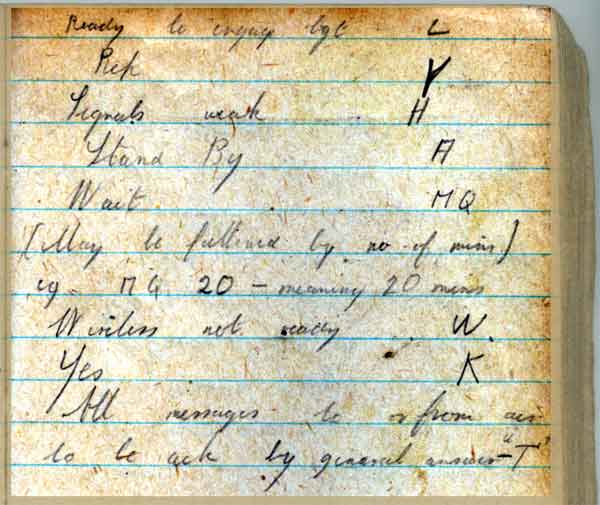 Ready to engage tgt L
Rep Y
Signals weak H
Stand By A
Wait MQ
(May be followed by no of mins)
eg. MQ 20 - meaning 20 mins
Wireless not ready W.
Yes K
All messages to or from air
to be ack by general answer - "T"